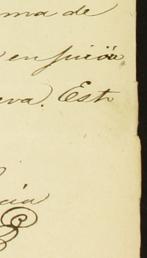 ma de
en juicio
va. Est
cia